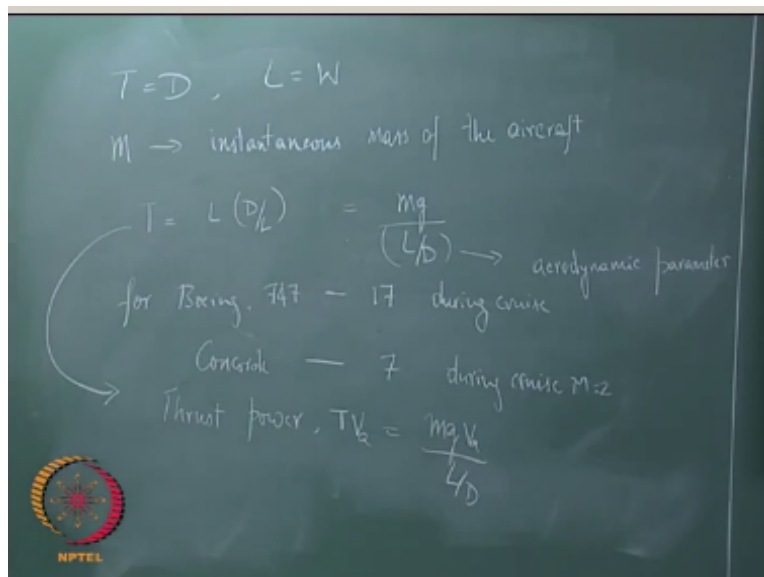 T = D, L = W
M → instantaneous mass of the aircraft
T = L (D/L) = mg / (L/D) → aerodynamic parameter
for Boeing. 747 — 17 during cruise
Concorde — 7 during cruise M=2
Thrust power, TVa = mg Va / L/D
NPTEL